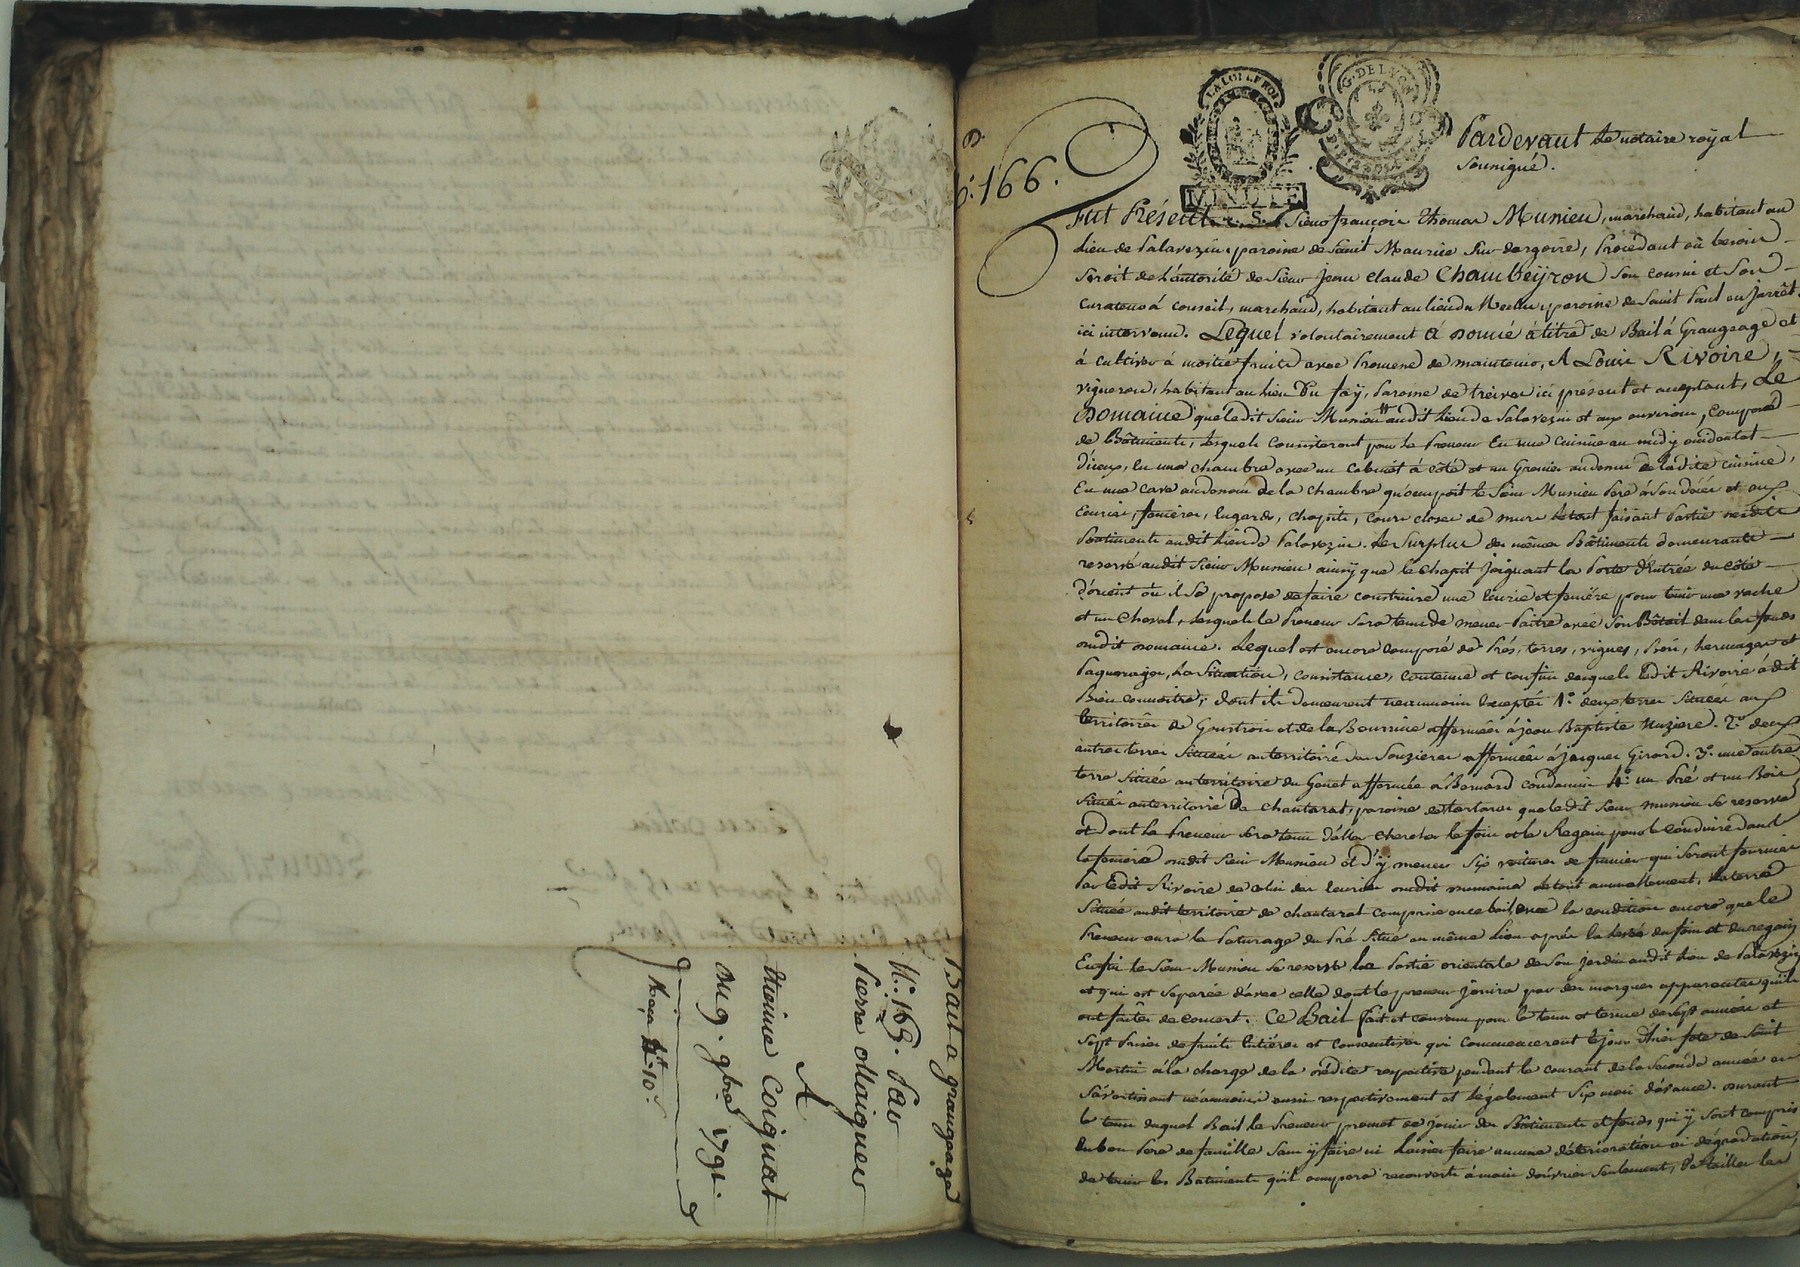 Bail a grangeage
N.º 165. Par
Pierre Maiguer
A
Etienne Coignat
du 9. 9bre 1791.
N.º 166.
LA LOI LE ROI
MINUTE
G. DE LYON
Pardevant le notaire royal
sousigné.
Fut Présent Sieur françois thomas Munieu, marchand, habitant au
lieu de Palavezin, paroisse de saint Maurice Sur dargoire, Procedant où besoin
Seroit de l'autorité de Sieur Jean Claude Chambeyron son cousin et Son
Curateur à conseil, marchand, habitant au lieu du paroisse de Saint Paul en Jarrêt
ici intervenu. Lequel volontairement a donné à titre de Bail à Grangeage et
à cultiver à moitié fruits avec Promesse de maintenir, A Louis Rivoire,
vigneron, habitant au lieu Du fay, Paroisse de treives ici présent et acceptant, Le
Domaine que ledit Sieur Munieu a audit lieu de Palavezin et aux environs, Composé
de Bâtiments, lesquels Consisteront pour le Preneur En une Cuisine au midy occidental
d'iceux, En une chambre avec un Cabinet à côté et un Grenier au dessus de ladite cuisine,
En une cave au dessous de la chambre qu'occupoit le Sieur Munieu Pere à Son décès et aux
Ecuries, feniéres, hugards, chapits, cours closes de murs le tout faisant Partie desdits
Batiments audit lieu de Palavezin. Le Surplus des mêmes Bâtiments demeurants
reservé audit Sieur Munieu ainsy que le Chapit Joignant la Porte d'Entrée du côté
d'orient où il Se propose de faire construire une Ecurie et feniére pour tenir une vache
et un Cheval, lesquels le Preneur Sera tenu de mener Paitre avec Son Bétail dans les fonds
dudit domaine. Lequel est encore Composé de Prés, terres, vignes, Bois, hermages et
Paquerages, La Situation, Consistance, Contenue et confins desquels ledit Rivoire a dit
Bien connoitre; dont ils demeurent néanmoins Exceptés 1º deux terres Situées aux
territoires de et de la affermées à jean Baptiste Nuziere. 2º deux
autres terres Situées au territoire des Souzieres affermées à Jacques Girard. 3º une autre
terre Située au territoire du Genet affermée à Bernard Condamin 4º un Pré et un Bois
Situés au territoire de Chantarat, paroisse de tartaras que ledit Sieur Munieu Se reserve
et dont le Preneur Sera tenu d'aller chercher le foin et le Regain pour le Conduire dans la
feniere dudit Sieur Munieu et d'y mener Six voitures de fumier qui Seront fournies
Par ledit Rivoire de celui des Ecuries dudit domaine le tout annuellement, la terre
Située audit territoire de chantarat comprise en ce bail, avec la condition encore que le
Preneur aura le Paturage du Pré Situé au même lieu après la levée du foin et du regain
Enfin le Sieur Munieu Se reserve la Partie orientale de Son Jardin audit lieu de Palavezin
et qui est Separée d'avec celle dont le preneur Jouira par des marques apparentes qu'ils
ont faites de concert. Ce Bail fait et convenu pour le tems et terme de Sept années et
Sept Prises de fruits Entiéres et Consecutives qui Commenceront le jour d'hier fete de Saint
Martin à la charge de la respective pendant le courant de la Seconde année en
S'avertissant néanmoins aussi respectivement et légalement Six mois d'avance. durant
le tems duquel Bail le Preneur promet de Jouir des Bâtiments et fonds qui y Sont compris
En bon Pere de famille Sans y faire ni Laisser faire aucune détérioration ni dégradation,
de tenir les Batiments qu'il occupera recouverts à main d'ouvrier Seulement, de tailler les